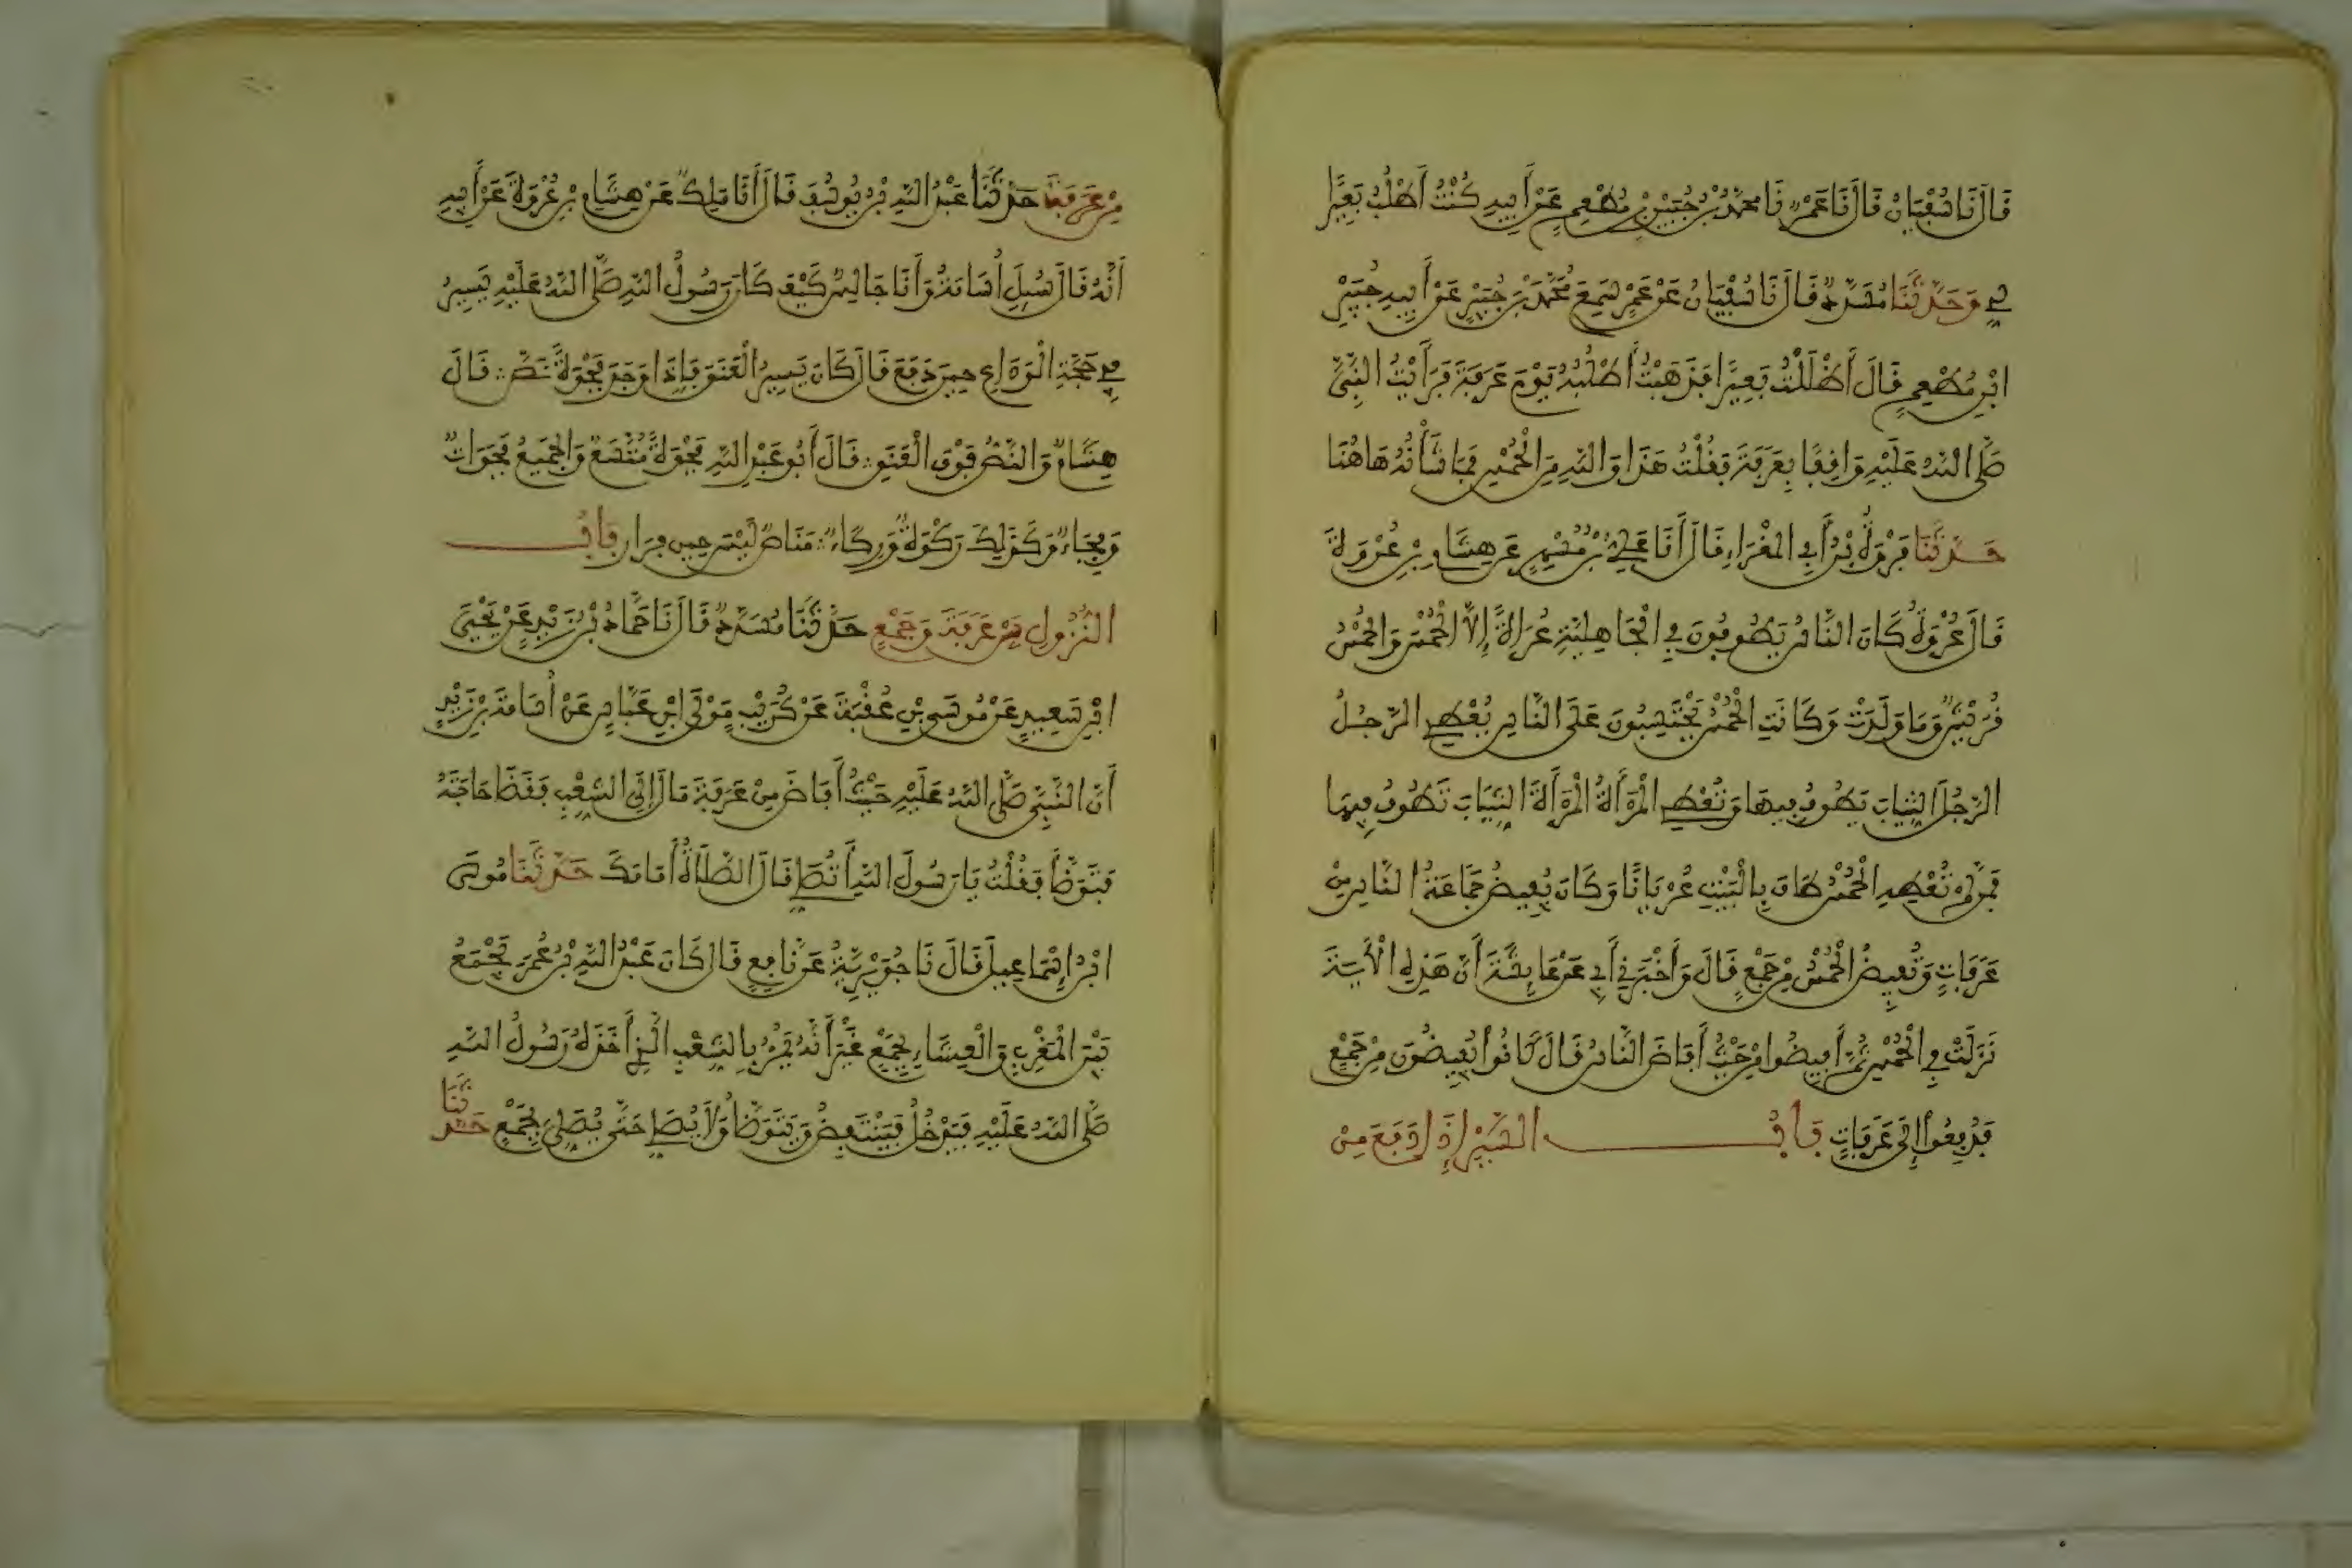 قَالَ نَا سُفْيَانُ قَالَ نَا عَمْرٌو نَا مُحَمَّدُ بْنُ جُبَيْرِ بْنِ مُطْعِمٍ عَنْ أَبِيهِ كُنْتُ أَطْلُبُ بَعِيرًا
لِي وَحَدَّثَنَا مُسَدَّدٌ قَالَ نَا سُفْيَانُ عَنْ عَمْرٍو سَمِعَ مُحَمَّدَ بْنَ جُبَيْرٍ عَنْ أَبِيهِ جُبَيْرِ
ابْنِ مُطْعِمٍ قَالَ أَضْلَلْتُ بَعِيرًا فَذَهَبْتُ أَطْلُبُهُ يَوْمَ عَرَفَةَ فَرَأَيْتُ النَّبِيَّ
صَلَّى اللَّهُ عَلَيْهِ وَاقِفًا بِعَرَفَةَ فَقُلْتُ هَذَا وَاللَّهِ مِنَ الْحُمْسِ فَمَا شَأْنُهُ هَاهُنَا
حَدَّثَنَا فَرْوَةُ بْنُ أَبِي الْمَغْرَاءِ قَالَ أَنَا عَلِيُّ بْنُ مُسْهِرٍ عَنْ هِشَامِ بْنِ عُرْوَةَ
قَالَ عُرْوَةُ كَانَ النَّاسُ يَطُوفُونَ فِي الْجَاهِلِيَّةِ عُرَاةً إِلَّا الْحُمْسَ وَالْحُمْسُ
قُرَيْشٌ وَمَا وَلَدَتْ وَكَانَتِ الْحُمْسُ يَحْتَسِبُونَ عَلَى النَّاسِ يُعْطِي الرَّجُلُ
الرَّجُلَ الثِّيَابَ يَطُوفُ فِيهَا وَتُعْطِي الْمَرْأَةُ الْمَرْأَةَ الثِّيَابَ تَطُوفُ فِيهَا
فَمَنْ لَمْ تُعْطِهِ الْحُمْسُ طَافَ بِالْبَيْتِ عُرْيَانًا وَكَانَ يُفِيضُ جَمَاعَةُ النَّاسِ مِنْ
عَرَفَاتٍ وَتُفِيضُ الْحُمْسُ مِنْ جَمْعٍ قَالَ وَأَخْبَرَنِي أَبِي عَنْ عَائِشَةَ أَنَّ هَذِهِ الْآيَةَ
نَزَلَتْ فِي الْحُمْسِ ثُمَّ أَفِيضُوا مِنْ حَيْثُ أَفَاضَ النَّاسُ قَالَ كَانُوا يُفِيضُونَ مِنْ جَمْعٍ
فَدُفِعُوا إِلَى عَرَفَاتٍ بَابُ السَّيْرِ إِذَا دَفَعَ مِنْ
مِنْ عَرَفَةَ حَدَّثَنَا عَبْدُ اللَّهِ بْنُ يُوسُفَ قَالَ أَنَا مَالِكٌ عَنْ هِشَامِ بْنِ عُرْوَةَ عَنْ أَبِيهِ
أَنَّهُ قَالَ سُئِلَ أُسَامَةُ وَأَنَا جَالِسٌ كَيْفَ كَانَ رَسُولُ اللَّهِ صَلَّى اللَّهُ عَلَيْهِ يَسِيرُ
فِي حَجَّةِ الْوَدَاعِ حِينَ دَفَعَ قَالَ كَانَ يَسِيرُ الْعَنَقَ فَإِذَا وَجَدَ فَجْوَةً نَصَّ ∴ قَالَ
هِشَامٌ وَالنَّصُّ فَوْقَ الْعَنَقِ ∴ قَالَ أَبُو عَبْدِ اللَّهِ فَجْوَةٌ مُتَّسَعٌ وَالْجَمِيعُ فَجَوَاتٌ
وَفِجَاءٌ وَكَذَلِكَ رَكْوَةٌ وَرِكَاءٌ ∴ مَنَاصٌ لَيْسَ حِينَ فِرَارٍ بَابُ
النُّزُولِ بَيْنَ عَرَفَةَ وَجَمْعٍ حَدَّثَنَا مُسَدَّدٌ قَالَ نَا حَمَّادُ بْنُ زَيْدٍ عَنْ يَحْيَى
ابْنِ سَعِيدٍ عَنْ مُوسَى بْنِ عُقْبَةَ عَنْ كُرَيْبٍ مَوْلَى ابْنِ عَبَّاسٍ عَنْ أُسَامَةَ بْنِ زَيْدٍ
أَنَّ النَّبِيَّ صَلَّى اللَّهُ عَلَيْهِ حَيْثُ أَفَاضَ مِنْ عَرَفَةَ مَالَ إِلَى الشِّعْبِ فَقَضَا حَاجَتَهُ
فَتَوَضَّأَ فَقُلْتُ يَا رَسُولَ اللَّهِ أَتُصَلِّي قَالَ الصَّلَاةُ أَمَامَكَ حَدَّثَنَا مُوسَى
ابْنُ إِسْمَاعِيلَ قَالَ نَا جُوَيْرِيَةُ عَنْ نَافِعٍ قَالَ كَانَ عَبْدُ اللَّهِ بْنُ عُمَرَ يَجْمَعُ
بَيْنَ الْمَغْرِبِ وَالْعِشَاءِ بِجَمْعٍ غَيْرَ أَنَّهُ يَمُرُّ بِالشِّعْبِ الَّذِي أَخَذَهُ رَسُولُ اللَّهِ
صَلَّى اللَّهُ عَلَيْهِ فَيَدْخُلُ فَيَنْتَفِضُ وَيَتَوَضَّأُ وَلَا يُصَلِّي حَتَّى يُصَلِّيَ بِجَمْعٍ حَدَّثَنَا